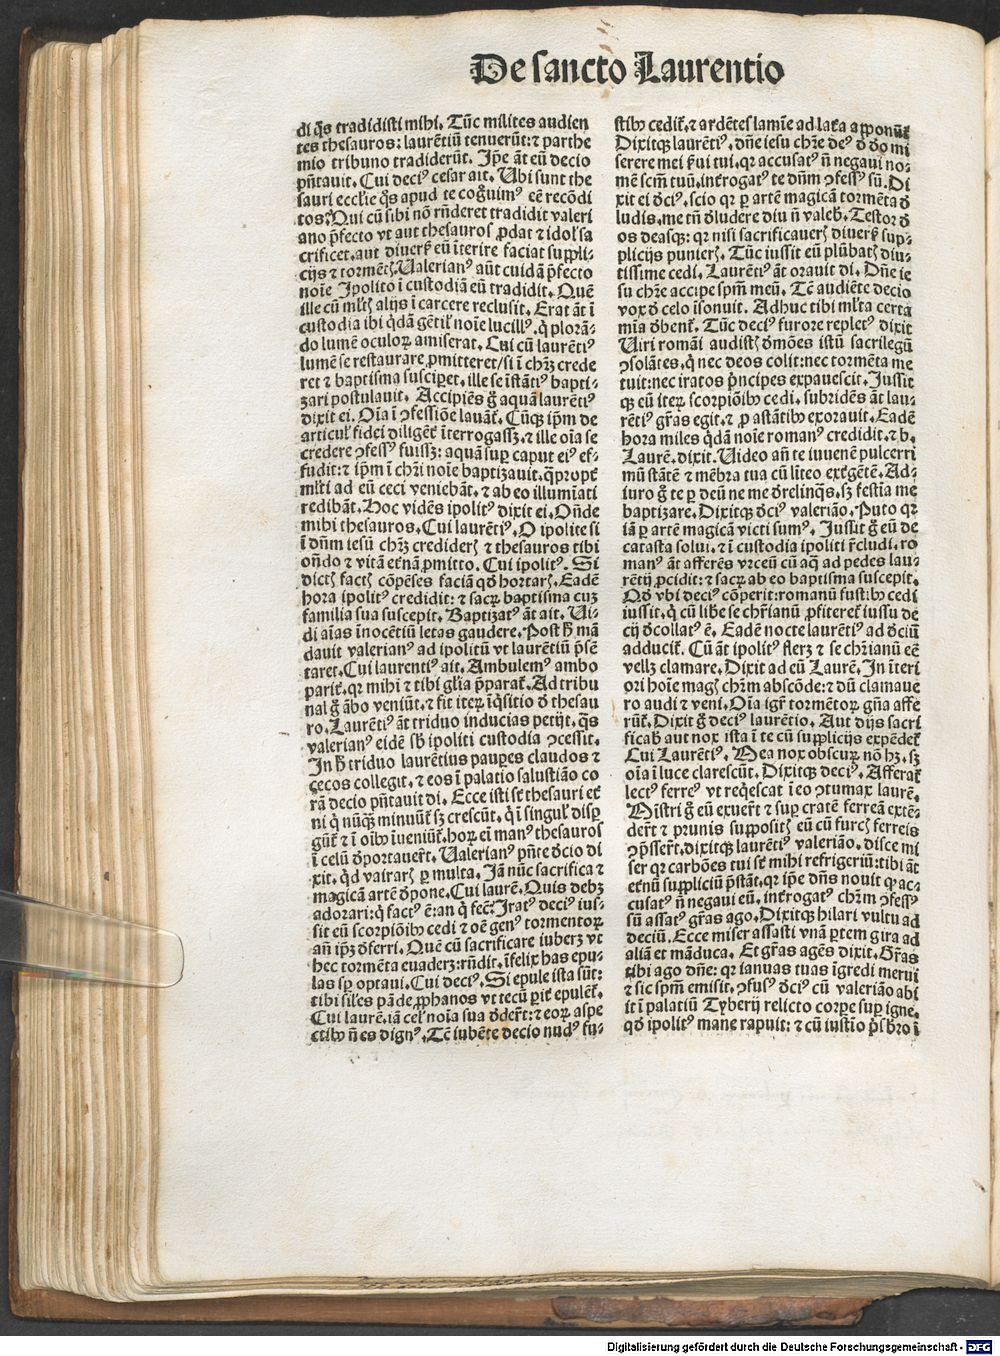 De sancto Laurentio
di q̄s tradidisti mihi. Tūc milites audien
tes thesauros: laurētiū tenuerūt: ⁊ parthe
mio tribuno tradiderūt. Ip̄e āt eū decio
p̄ntauit. Cui deciꝰ cesar ait. Ubi sunt the
sauri eccl'ie q̄s apud te cog̃uimꝰ eē recōdi
tos? Qui cū sibi nō rn̄deret tradidit valeri
ano p̄fecto vt aut thesauros ꝓdat ⁊ idol' sa
crificet. aut diuers̉ eū īterire faciat suppli-
cijs ⁊ tormēt. Valerianꝰ aūt cuidā p̄fecto
noīe Ipolito ī custodiā eū tradidit. Quē
ille cū ml'tꝭ alijs ī carcere reclusit. Erat āt ī
custodia ibi q̄dā gētil' noīe lucillꝰ. q̇ plorā-
do lumē oculoꝝ amiserat. Cui cū laurētiꝰ
lumē se restaurare ꝓmitteret/si ī chr̄ꝫ crede
ret ⁊ baptisma susciꝑet. ille se īstātiꝰ bapti-
zari postulauit. Accipiēs g̊ aquā laurētiꝰ
dixit ei. Oīa ī ꝯfessiōe lauāt̉. Cūqꝫ ip̄m de
articul' fidei diligēt̉ īterrogassꝫ. ⁊ ille oīa se
credere ꝯfessꝰ fuissꝫ: aquā suꝑ caput eiꝰ ef-
fudit: ⁊ ip̄m ī chr̄i noīe baptizauit. q̄propt̉
ml'ti ad eū ceci veniebāt. ⁊ ab eo illumīati
redibāt. Hoc vidēs ipolitꝰ dixit ei. Oñde
mihi thesauros. Cui laurētiꝰ. O ipolite si
ī dn̄m iesū chr̄ꝫ credideꝭ ⁊ thesauros tibi
on̄do ⁊ vitā et̉nā ꝓmitto. Cui ipolitꝰ. Si
dictꝭ factꝭ cōpēses faciā qđ hortaꝭ. Eadē
hora ipolitꝰ credidit: ⁊ sacꝝ baptisma cuꝫ
familia sua suscepit. Baptizatꝰ āt ait. Ui-
di aīas īnocētiū letas gaudere. Post h̄ mā
dauit valerianꝰ ad ipolitū vt laurētiū p̄sē
taret. Cui laurentiꝰ ait. Ambulemꝰ ambo
parit̉. qꝛ mihi ⁊ tibi gl'ia p̄parat̉. Ad tribu
nal g̊ ābo veniūt. ⁊ fit iteꝝ īq̇sitio đ thesau
ro. Laurētiꝰ āt triduo inducias petijt. q̄s
valerianꝰ eidē sb̄ ipoliti custodia ꝯcessit.
In h̄ triduo laurētius pauꝑes claudos ⁊
cecos collegit. ⁊ eos ī palatio salustiāo co
rā decio p̄ntauit di. Ecce isti st̄ thesauri et̉
ni q̇ nūq̄ꝫ minuūt̉ sꝫ crescūt. q̇ ī singul' disꝑ
gūt̉ ⁊ ī oībꝰ īueniūt̉. hoꝝ ei manꝰ thesauros
ī celū đportauer̄t. Valerianꝰ p̄nte đcio di
xit. q̇d variaꝭ ꝑ multa. Iā nūc sacrifica ⁊
magicā artē đpone. Cui laurē. Quis debꝫ
adorari: q̇ factꝰ ē: an q̇ fec̉. Iratꝰ deciꝰ ius-
sit eū scorpiōibꝰ cedi ⁊ oē genꝰ tormentoꝝ
añ ip̄ꝫ đferri. Que cū sacrificare iuberꝫ vt
hec tormēta euaderꝫ: rn̄dit. īfelix has epu-
las sꝑ optaui. Cui deciꝰ. Si epule ista sūt:
tibi sil'es pāde ꝓphanos vt tecū ꝑit̉ epulēt̉.
Cui laurē. iā cel' noīa sua đder̄t: ⁊ eoꝝ aspe
ctibꝰ ñ es dignꝰ. Tē iubēte decio nudꝰ fu-
stibꝰ cedit̉. ⁊ ardētes lamīe ad lat̉a apponūt̉
Dixitqꝫ laurētiꝰ. dn̄e iesu chr̄e deꝰ đ đo mi
serere mei s̉ui tui. qꝛ accusatꝰ ñ negaui no-
mē scm̄ tuū. int̉rogatꝰ te dn̄m ꝯfessꝰ sū. Di
xit ei đciꝰ. scio qꝛ ꝑ artē magicā tormēta đ
ludis. me tn̄ đludere diu ñ valebꝭ. Testor đ
os deasqꝫ: qꝛ nisi sacrificaueꝭ diuers̉ sup-
plicijs punieꝭ. Tūc iussit eū plūbatꝭ diu-
tissime cedi. Laurētiꝰ āt orauit di. Dn̄e ie
su chr̄e accipe spm̄ meū. Tē audiēte decio
vox đ celo īsonuit. Adhuc tibi ml'ta certa
mīa đbent̉. Tūc deciꝰ furore repletꝰ dixit
Uiri romāi audistꝭ đmōes istū sacrilegū
ꝯsolātes. q̇ nec deos colit: nec tormēta me
tuit: nec iratos p̄ncipes expauescit. Jussit
qꝫ eū iteꝝ scorpiōibꝰ cedi. subridēs āt lau-
rētiꝰ gr̄as egit. ⁊ ꝓ astātibꝰ exorauit. Eadē
hora miles q̇dā noīe romanꝰ credidit. ⁊ b.
Laurē. dixit. Uideo an̄ te iuuenē pulcerri
mū stātē ⁊ mēbra tua cū līteo ext̉gētē. Ad-
iuro g̊ te ꝑ deū ne me đrelinq̄s. sꝫ festīa me
baptizare. Dixitqꝫ đciꝰ valeriāo. Puto qꝛ
iā ꝑ artē magicā victi sumꝰ. Jussit g̊ eū de
catasta solui. ⁊ ī custodia ipoliti r̄cludi. ro
manꝰ āt afferēs vrceū cū aq̄ ad pedes lau-
rētij ꝓcidit: ⁊ sacꝝ ab eo baptisma suscepit.
Qđ vbi deciꝰ cōperit: romanū fustibꝰ cedi
iussit. q̇ cū libe se chr̄ianū ꝓfiteret̉ iussu de
cij đcollatꝰ ē. Eadē nocte laurētiꝰ ad đciū
adducit̉. Cū āt ipolitꝰ flerꝫ ⁊ se chr̄ianū eē
vellꝫ clamare. Dixit ad eū Laurē. In īteri
ori hoīe magꝭ chr̄m abscōde: ⁊ dū clamaue
ro audi ⁊ veni. Oīa igr̄ tormētoꝝ gn̄a affe
rūt̉. Dixit g̊ deciꝰ laurētio. Aut dijs sacri
ficabꝭ aut nox ista ī te cū supplicijs expēdet̉
Cui Laurētiꝰ. Mea nox obscuꝝ nō hꝫ. sꝫ
oīa ī luce clarescūt. Dixitqꝫ deciꝰ. Afferat̉
lectꝰ ferreꝰ vt req̇escat ī eo ꝯtumax laurē.
Mīstri g̊ eū exuer̄t ⁊ suꝑ cratē ferreā extē-
der̄t ⁊ prunis suppositꝭ eū cū furcꝭ ferreis
ꝯp̄sser̄t. dixitqꝫ laurētiꝰ valeriāo. disce mi
ser qꝛ carbōes tui st̄ mihi refrigeriū: tibi āt
et̉nū suppliciū p̄stāt. qꝛ ip̄e dn̄s nouit ꝙ ac-
cusatꝰ ñ negaui eū. int̉rogatꝰ chr̄m ꝯfessꝰ
sū assatꝰ gr̄as ago. Dixitqꝫ hilari vultu ad
deciū. Ecce miser assasti vnā ꝑtem gira ad
aliā et māduca. Et gr̄as agēs dixit. Gr̄as
tibi ago dn̄e: qꝛ ianuas tuas īgredi merui
⁊ sic spm̄ emisit. ꝯfusꝰ đciꝰ cū valeriāo abi
it ī palatiū Tyberij relicto corꝑe suꝑ igne.
qđ ipolitꝰ mane rapuit: ⁊ cū iustīo p̄sb̄ro ī
Digitalisierung gefördert durch die Deutsche Forschungsgemeinschaft - DFG